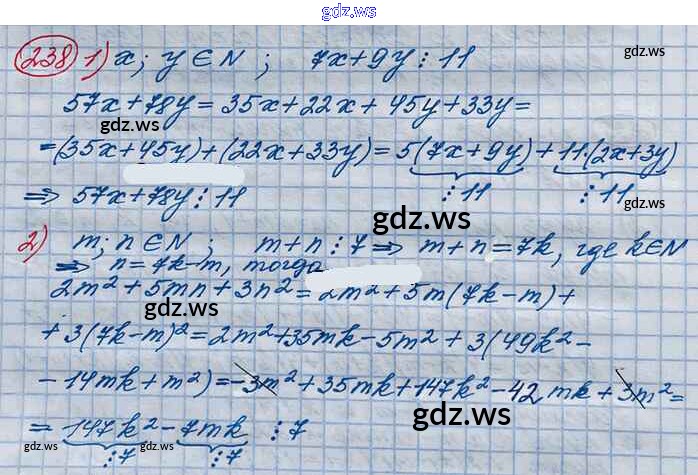 gdz.ws
238 1) x; y ∈ N ; 7x+9y ⋮ 11
gdz.ws
57x+78y = 35x+22x+45y+33y=
gdz.ws
=(35x+45y)+(22x+33y)=5(7x+9y)+11·(2x+3y)
⋮11 ⋮11
⇒ 57x+78y ⋮ 11
gdz.ws
gdz.ws
2) m; n ∈ N ; m+n ⋮ 7 ⇒ m+n=7k, где k∈N
⇒ n=7k-m, тогда
2m²+5mn+3n²=2m²+5m(7k-m)+
gdz.ws
+3(7k-m)²=2m²+35mk-5m²+3(49k²-
-14mk+m²)=-3m²+35mk+147k²-42mk+3m²=
gdz.ws
=147k²-7mk ⋮7
gdz.ws gdz.ws gdz.ws
⋮7 ⋮7